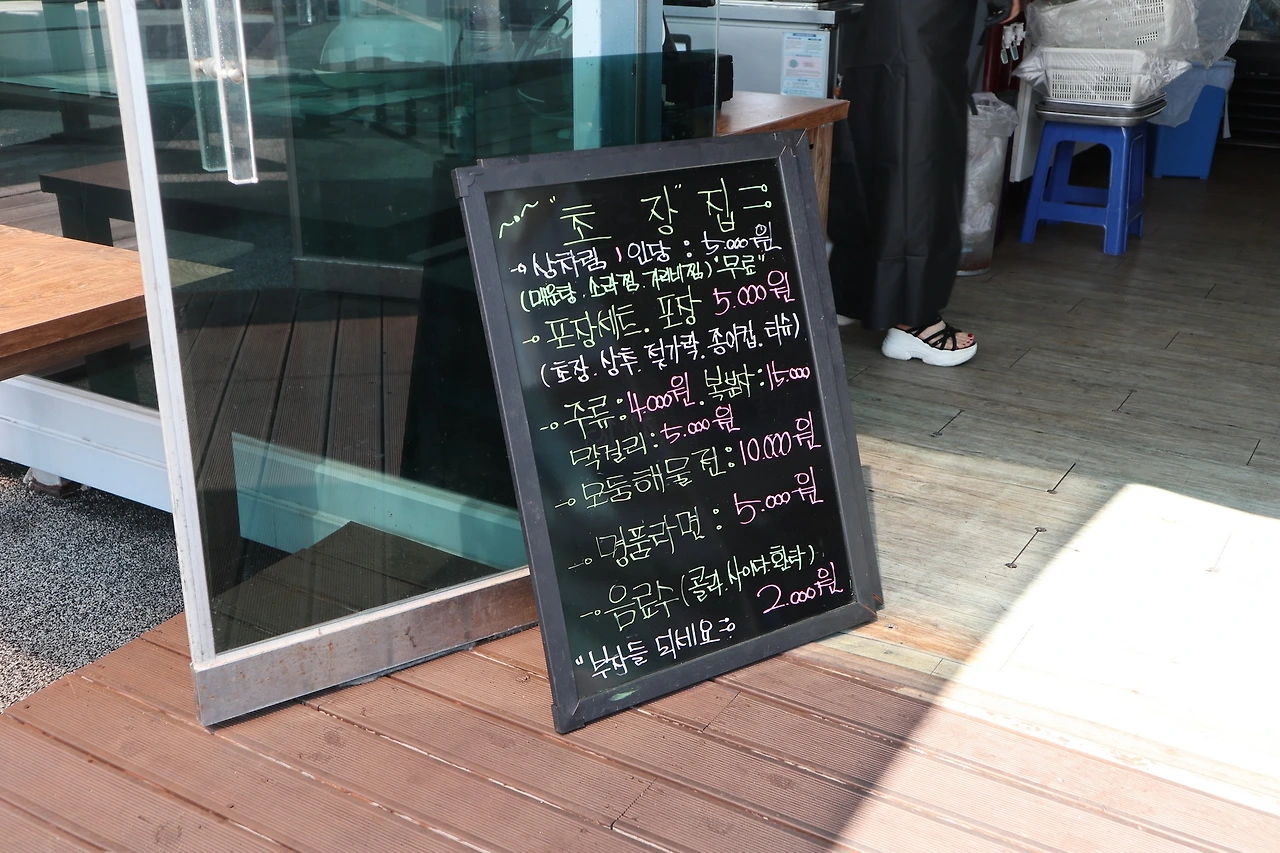 "초 장 집
상차림 1인당 : 5.000원
(매운탕.소라찜.가리비찜)"무료"
포장세트. 포장 5.000원
(초장.상추.젓가락.종이컵.티슈)
주류:4.000원. 복분자:15.000
막걸리:5.000원
모둠해물전:10.000원
명품라면 : 5.000원
음료수(콜라.사이다.환타)
2.000원
"부자들 되세요